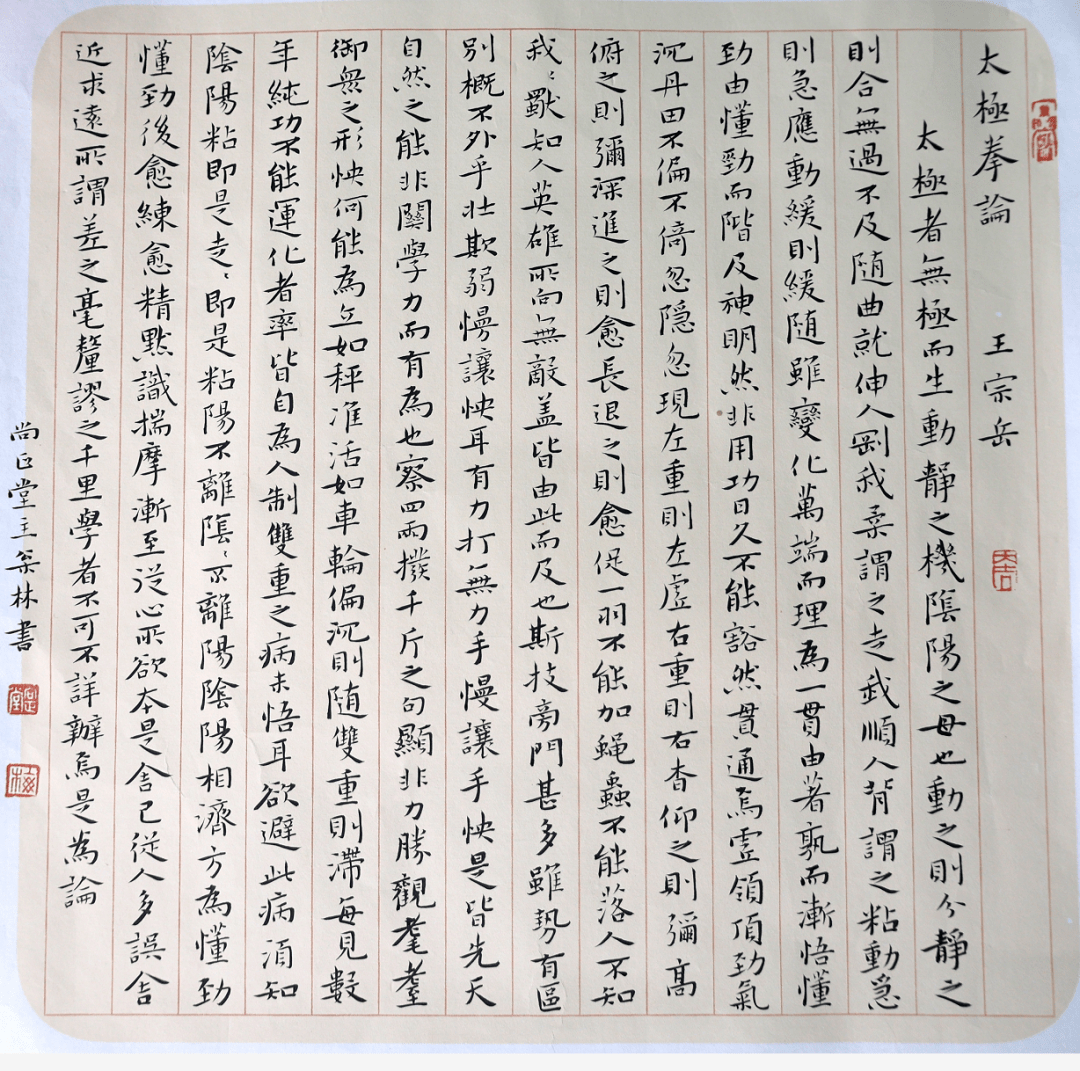 太極拳論 王宗岳
太極者無極而生動靜之機陰陽之母也動之則分靜之
則合無過不及隨曲就伸人剛我柔謂之走我順人背謂之粘動急
則急應動緩則緩隨雖變化萬端而理為一貫由著孰而漸悟懂
勁由懂勁而階及神明然非用功日久不能豁然貫通焉虛領頂勁氣
沉丹田不偏不倚忽隱忽現左重則左虛右重則右杳仰之則彌高
俯之則彌深進之則愈長退之則愈促一羽不能加蝿蟲不能落人不知
我〻獸知人英雄所向無敵盖皆由此而及也斯技旁門甚多雖勢有區
別概不外乎壮欺弱慢讓快耳有力打無力手慢讓手快是皆先天
自然之能非關學力而有為也察四兩撥千斤之句顯非力勝觀耄耋
御無之形快何能為立如秤准活如車輪偏沉則隨雙重則滯每見數
年純功不能運化者率皆自為人制雙重之病未悟耳欲避此病須知
陰陽粘即是走〻即是粘陽不離陰〻不離陽陰陽相濟方為懂勁
懂勁後愈練愈精默識揣摩漸至從心所欲本是舍己從人多誤舍
近求遠所謂差之毫釐謬之千里學者不可不詳辦焉是為論
尚正堂主 林書